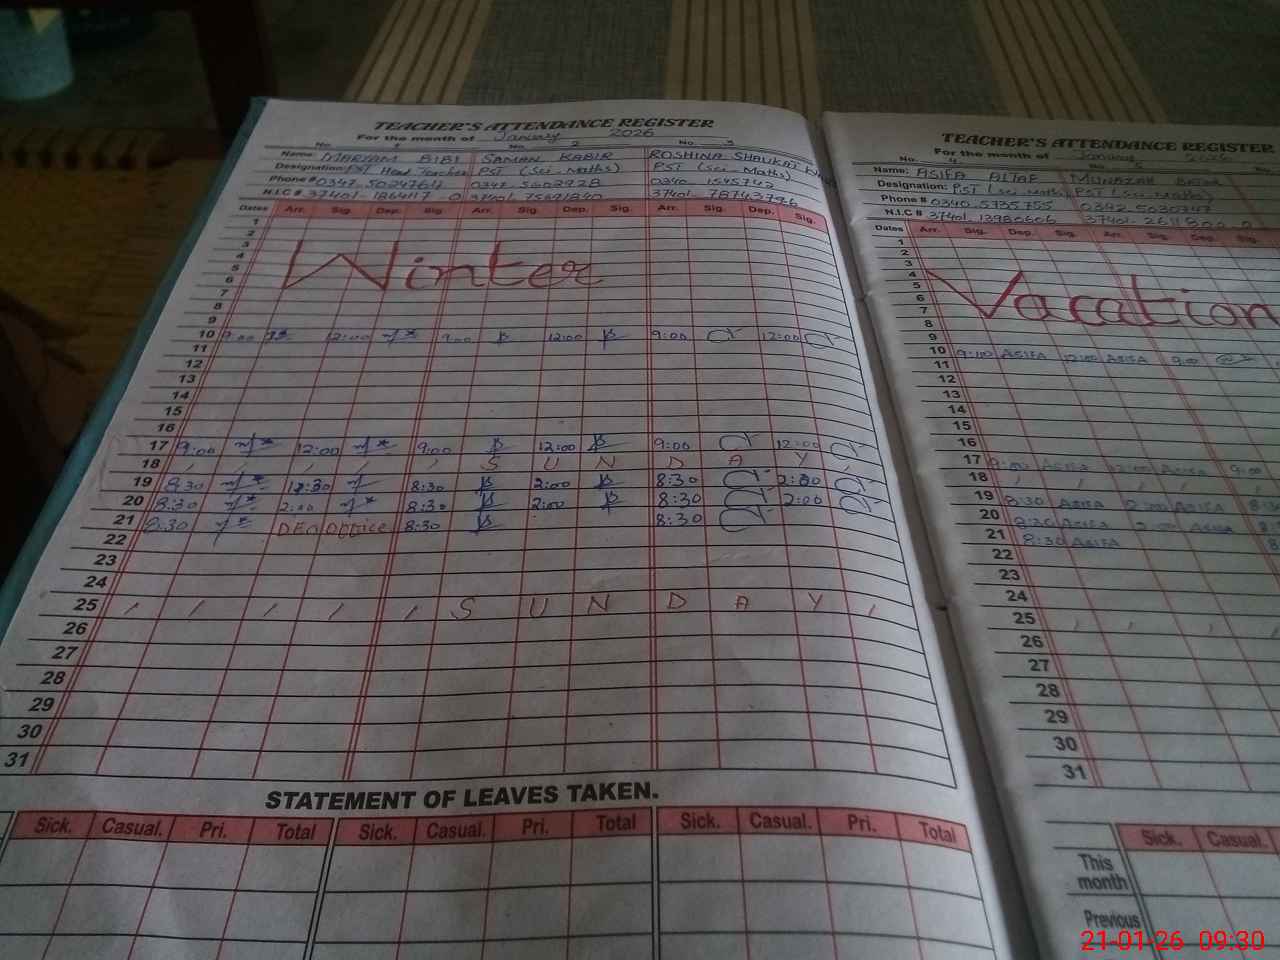 TEACHER'S ATTENDANCE REGISTER
For the month of January 2026
No. 1 No. 2 No. 3
Name: MARYAM BIBI SAMAN KABIR ROSHINA SHAUKAT
Designation: PST Head Teacher PST (Sci. Maths) PST (Sci. Maths)
Phone #
N.I.C #
Dates Arr. Sig. Dep. Sig. Arr. Sig. Dep. Sig. Arr. Sig. Dep. Sig.
1
2
3
4
5
6
7
8
9
Winter
10 9:00 12:00 9:00 12:00 9:00 12:00
11
12
13
14
15
16
17 9:00 12:00 9:00 12:00 9:00 12:00
18 S U N D A Y
19 8:30 8:30 2:00 8:30
20 8:30 2:00 8:30 2:00 8:30 2:00
21 8:30 DEO Office 8:30 8:30
22
23
24
25 S U N D A Y
26
27
28
29
30
31
STATEMENT OF LEAVES TAKEN.
Sick. Casual. Pri. Total Sick. Casual. Pri. Total Sick. Casual. Pri. Total
TEACHER'S ATTENDANCE REGISTER
For the month of January 2026
No. 4 No. 5
Name: ASIFA ALTAF MUNAZAH
Designation: PST (Sci Maths) PST (Sci Maths)
Phone # 0340.5735755
N.I.C # 37401.13980606
Dates Arr. Sig. Dep. Sig. Arr. Sig. Dep. Sig.
1
2
3
4
5
6
7
8
9
Vacation
10 9:00 ASIFA 12:00 ASIFA 9:00
11
12
13
14
15
16
17 9:00 ASIFA 12:00 ASIFA 9:00
18
19 8:30 ASIFA 2:00 ASIFA
20 8:30 ASIFA 2:00 ASIFA
21 8:30 ASIFA
22
23
24
25
26
27
28
29
30
31
Sick. Casual.
This month
Previous
21-01-26 09:30